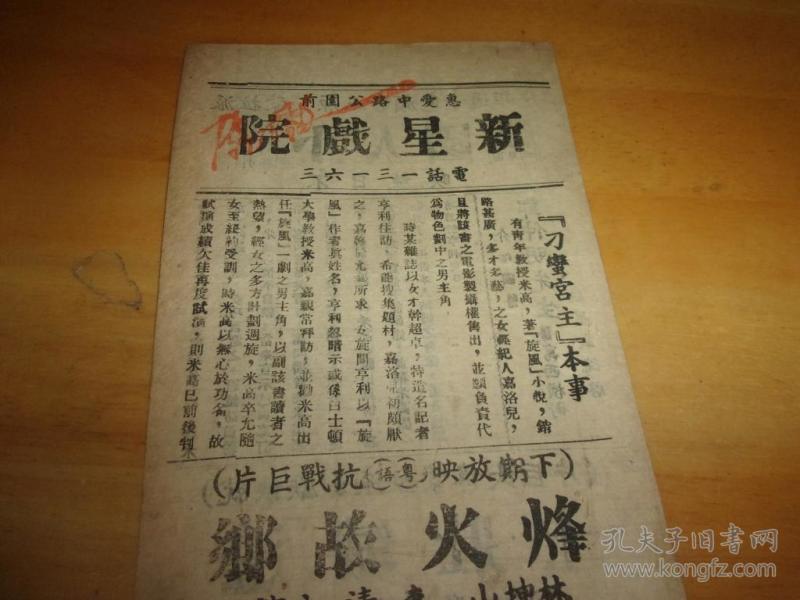 惠愛中路公園前
新星戲院
電話一三一六三
『刁蠻宮主』本事
有靑年敎授米高，著『旋風』小說，銷
路甚廣，多才多藝，之女經紀人嘉洛兒，
且將該書之電影製攝權售出，並願負責代
爲物色劇中之男主角
時某雜誌以女才幹超卓，特遣名記者
亨利往訪，希能搜集題材，嘉洛兒初頗厭
之，嘉幹所求，女旋聞亨利以『旋
風』作者眞姓名，亨利忽暗示或係白士頓
大學敎授米高，嘉親當拜訪，並勸米高出
任『旋風』一劇之男主角，以副該書讀者之
熱望，經女之多方計劃週旋，米高卒允隨
女至紐約受訓，時米高以無心於功名，故
試演成績欠佳再度試演，則米高已前後判
（下期放映（粤語）抗戰巨片）
烽火故鄉
林坤山
孔夫子旧书网
www.kongfz.com